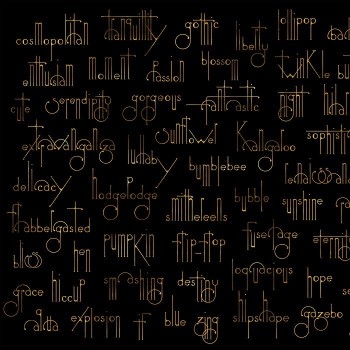 cosmopolitan tranquillity gothic liberty lollipop
enthusiasm moment passion blossom twinkle
cute serendipity gorgeous fantastic
extravaganza lullaby sunflower kangaroo
delicacy hodgepodge bumblebee renaissance
flabbergasted smithereens bubble sunshine
bliss hen pumpkin flip-flop fuselage
grace hiccup smashing destiny loquacious hope
explosion if blue zing shipshape gazebo